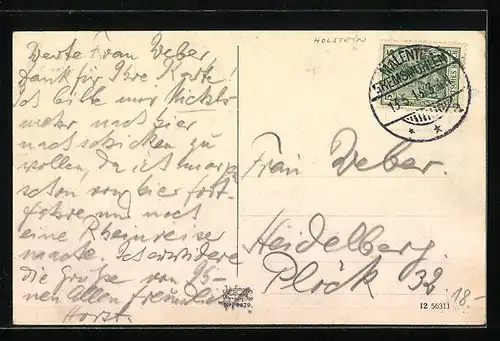 Werte Frau Weber,
Dank für Ihre Karte!
Ich bitte mir Nichts
mehr nach hier
nachschicken zu
wollen, da ich morg.
schon von hier fort-
fahre und noch
eine Rheinreise
mache. Ich erwidere
die Grüße von Ih-
nen Allen freundl.
Horst.
HOLSTEIN
MALENTE-
GREMSMÜHLEN
Frau Weber.
Heidelberg.
Plöck 32.
12 56311
18.-